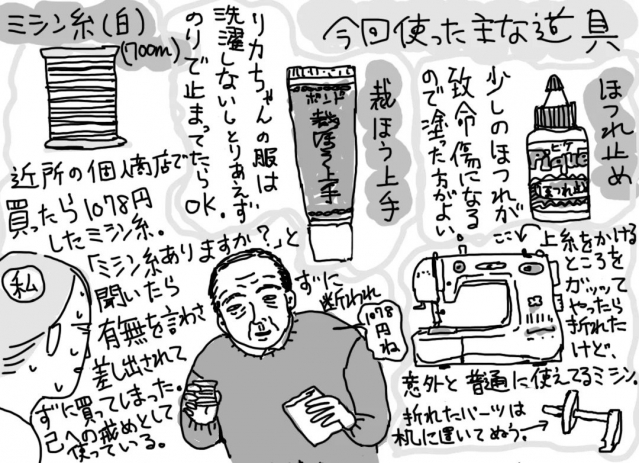 今回使った主な道具
ほつれ止め
ピケ
ほつれ
少しのほつれが
致命傷になる
ので塗った方がよい。
裁ほう上手
ボンド
裁ほう上手
リカちゃんの服は
洗濯しないしとりあえず
のりで止まってたら
OK。
ミシン糸(白)
(700m)
近所の個人商店で
買ったら1078円
したミシン糸。
「ミシン糸ありますか?」と
聞いたら
有無を言わさ
ずに
差し出されて
断われ
ずに買ってしまった。
己への戒めとして
使っている。
私
1078
円
ね
ここ
上糸をかける
ところを
ガッッて
やったら
折れた
けど、
意外と普通に使えてるミシン。
折れたパーツは
机に置いてぬう。